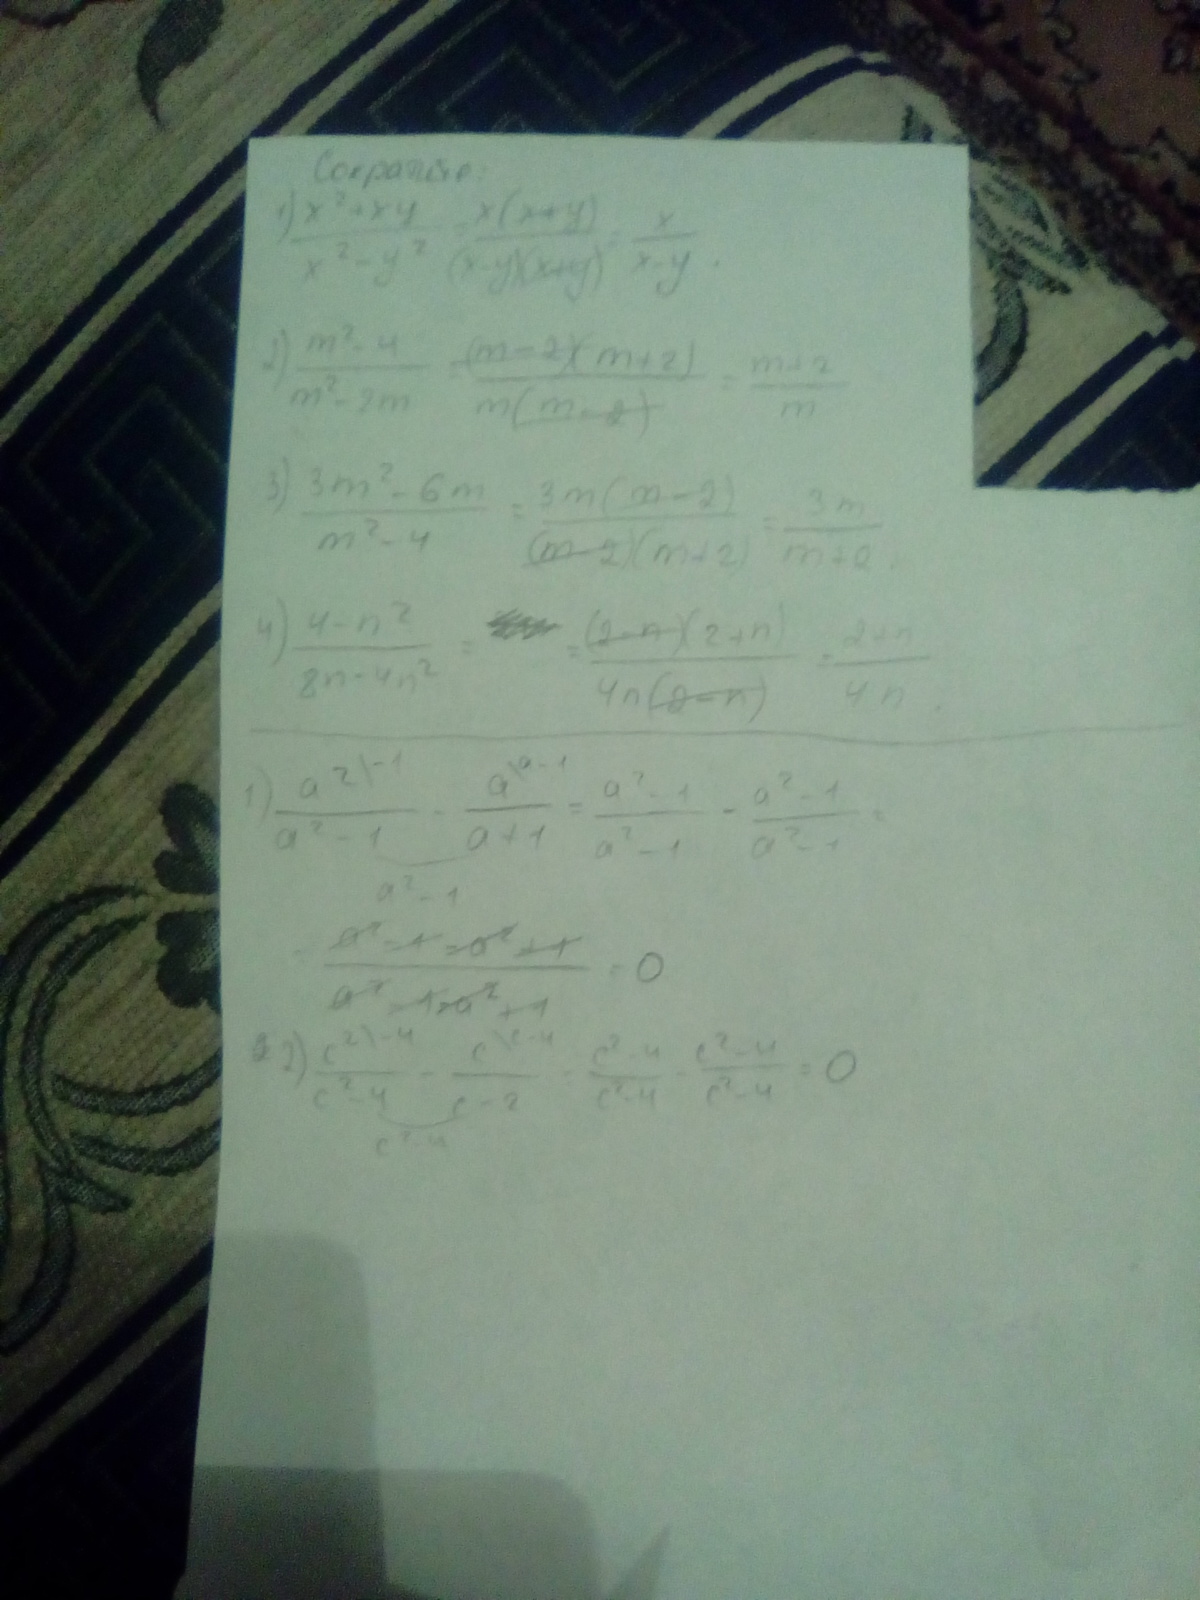 Сократите:
1) (x²+xy)/(x²-y²) = x(x+y)/((x-y)(x+y)) = x/(x-y).
2) (m²-4)/(m²-2m) = (m-2)(m+2)/(m(m-2)) = (m+2)/m
3) (3m²-6m)/(m²-4) = 3m(m-2)/((m-2)(m+2)) = 3m/(m+2).
4) (4-n²)/(8n-4n²) = = (2-n)(2+n)/(4n(2-n)) = (2+n)/4n.
1) a²\-1/(a²-1) - a\a-1/(a+1) = (a²-1)/(a²-1) - (a²-1)/(a²-1) =
a²-1
= (a²-1-a²+1)/(a²-1-a²+1) = 0
2) c²\-4/(c²-4) - c\c-4/(c-2) = (c²-4)/(c²-4) - (c²-4)/(c²-4) = 0
c²-4